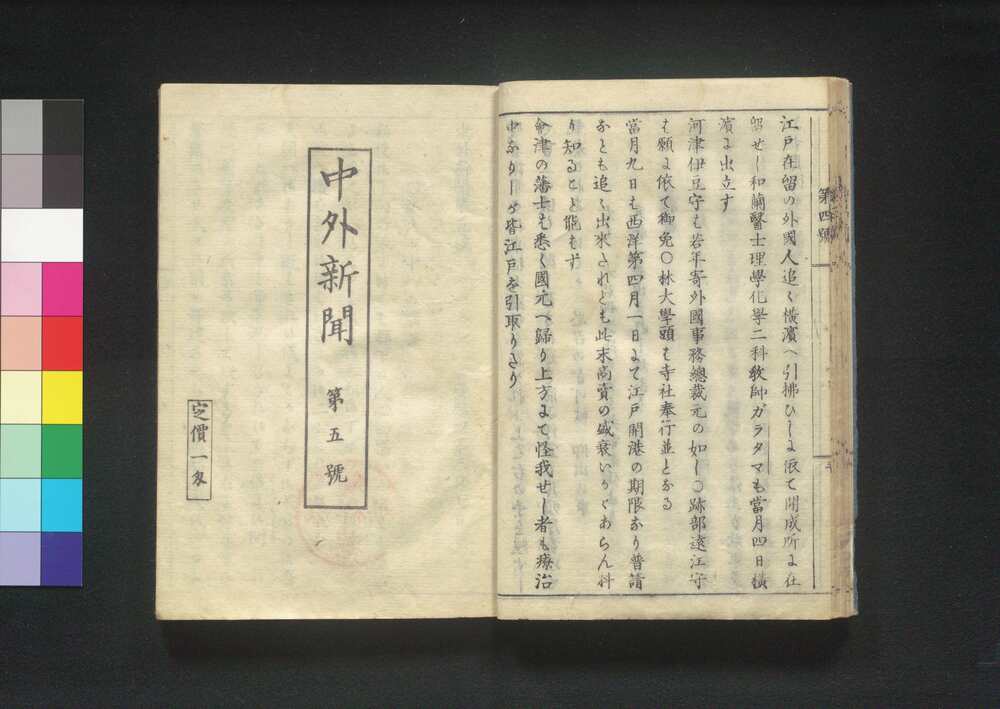 江戸在留の外國人追〻横濱へ引拂ひしに依て開成所に在
留せし和蘭醫士理學化學二科敎師ガラタマも當月四日横
濱に出立す
河津伊豆守も若年寄外國事務總裁元の如し〇跡部遠江守
も願に依て御免〇林大學頭も寺社奉行並となる
當月九日も西洋第四月一日にて江戸開港の期限なり普請
なども追〻出來たれども此末商賣の盛衰いかゞあらん料
り知ること能もず
會津の藩士も悉く國元へ歸り上方にて怪我せし者も療治
中なりしが皆江戸を引取りたり
第四號
中外新聞 第五號
定價一匁